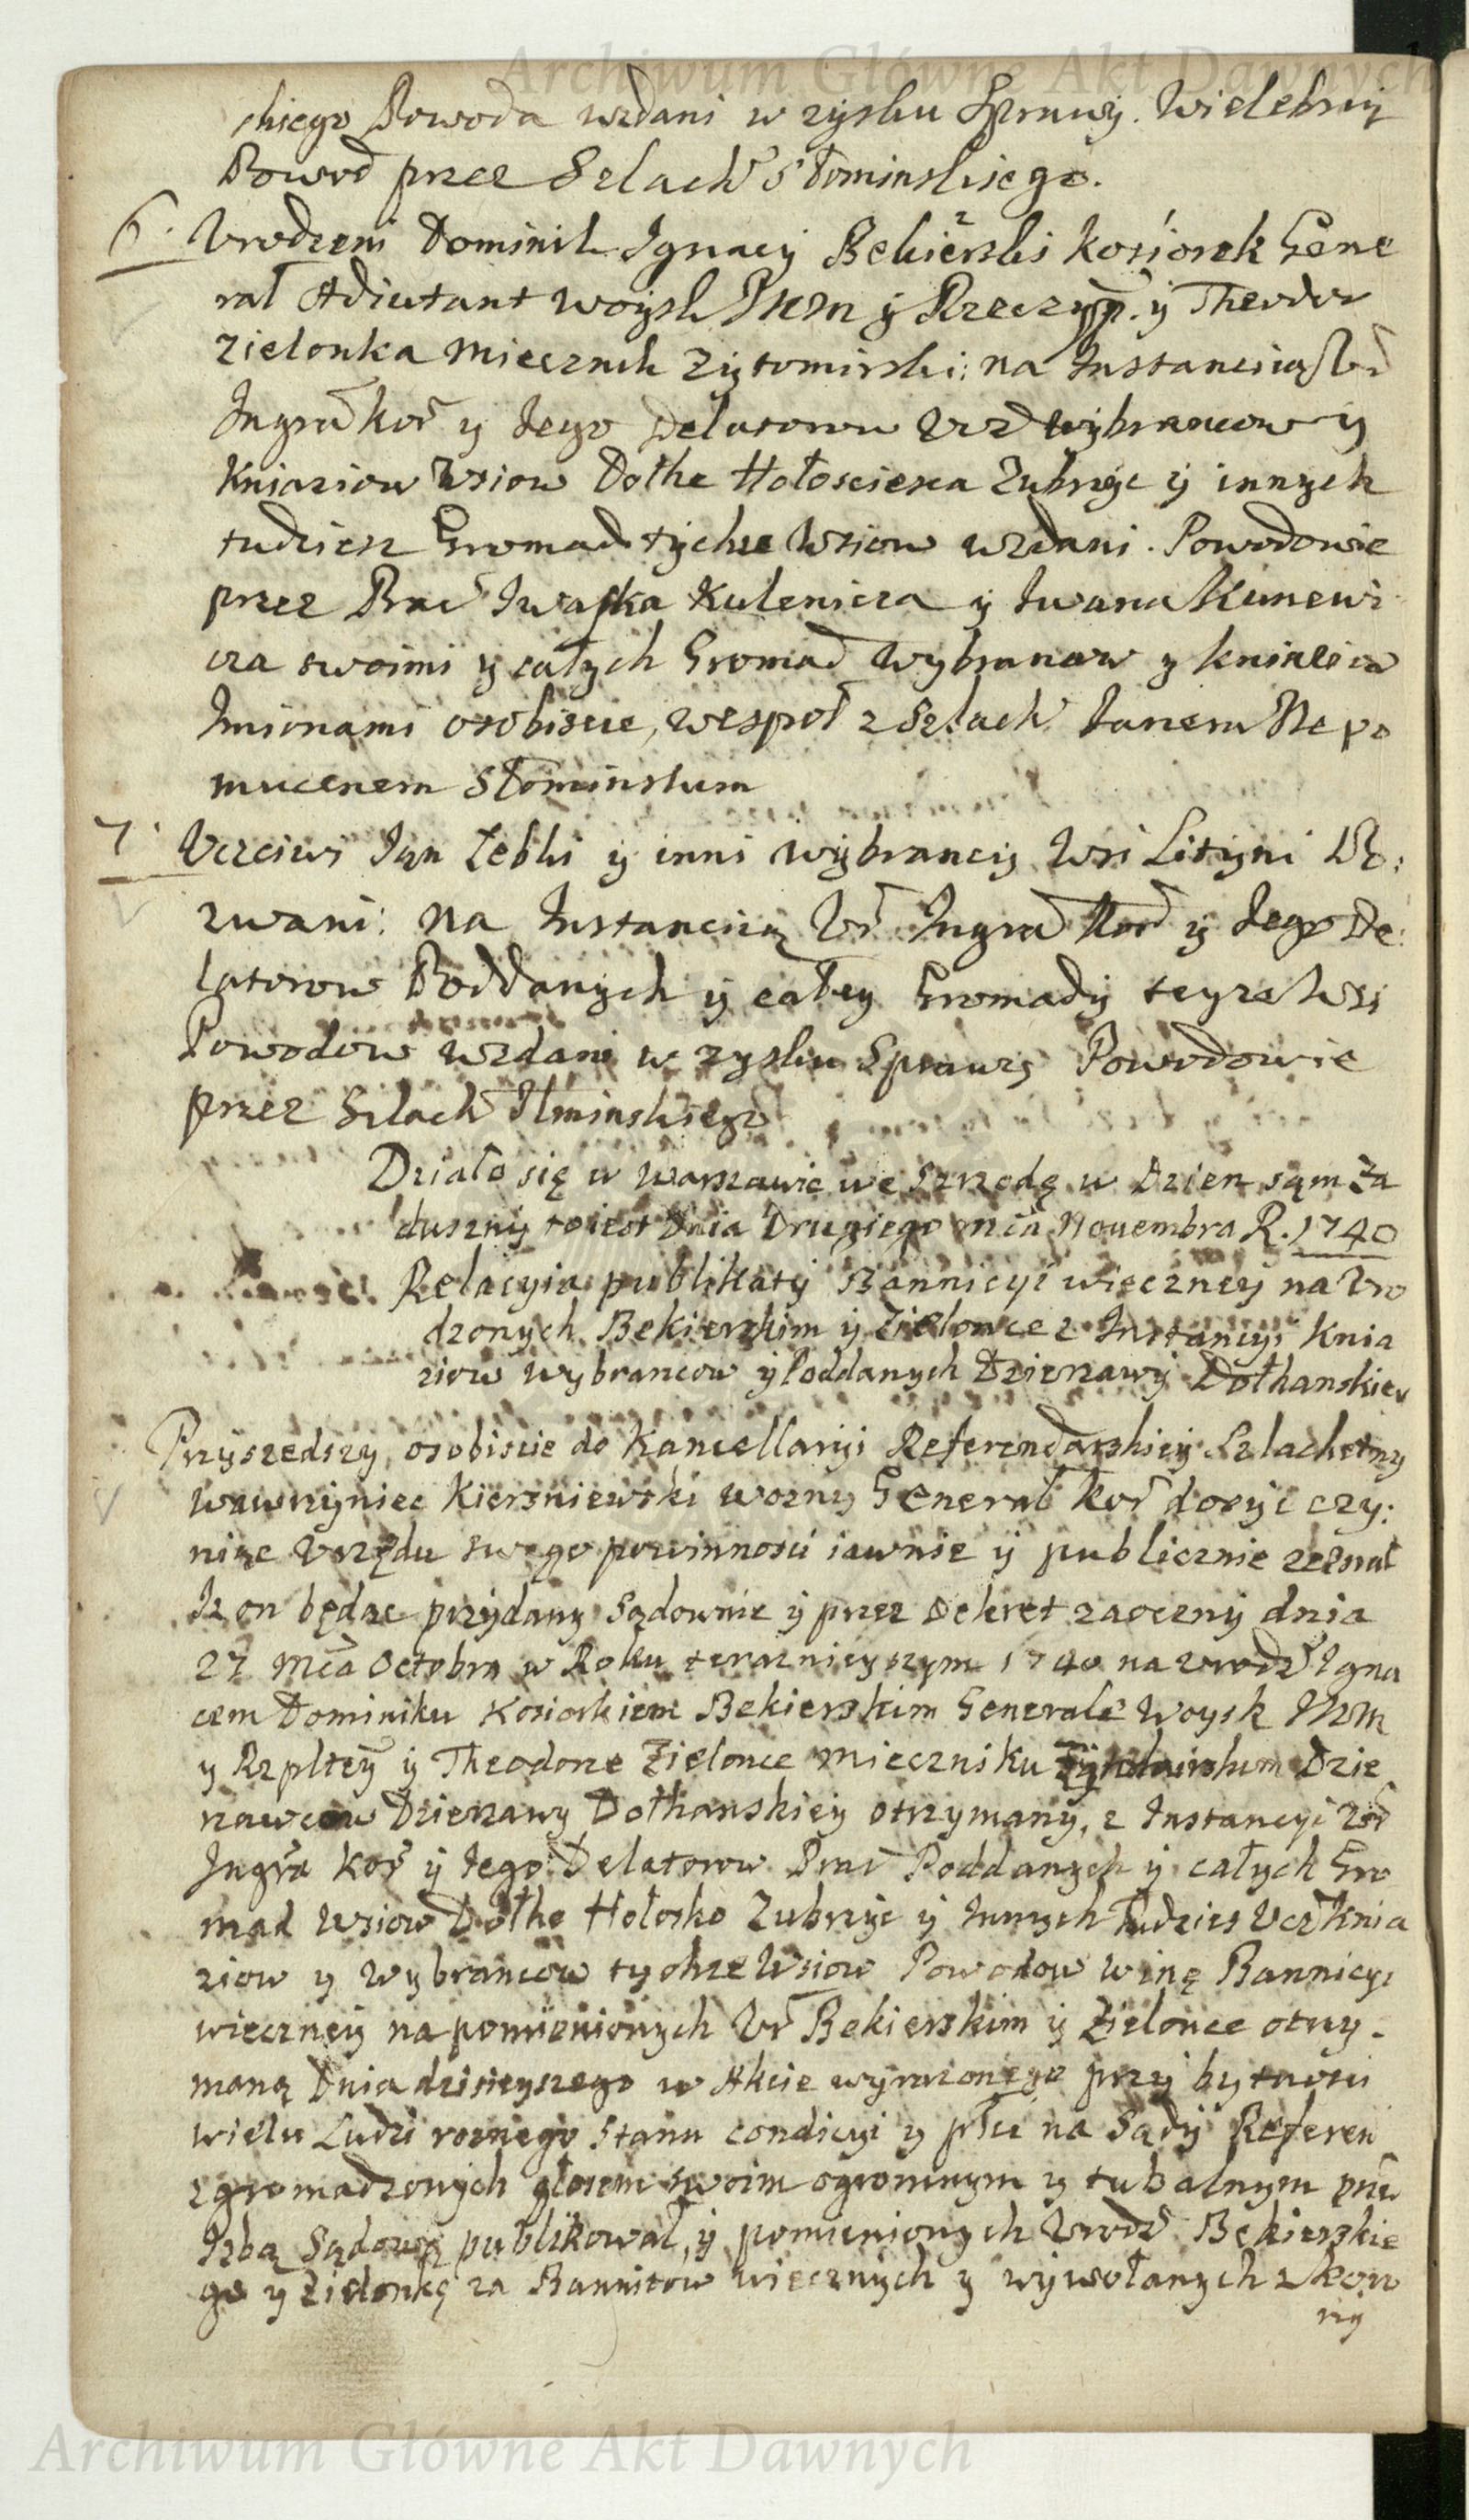 Archiwum Główne Akt Dawnych
skiego Powoda wzdani w zysku Sprawy. Wielebny
Powod przez Szlach Słominskiego.
6. Vrodzeni Dominik Ignacy Bekierski Kosiorek Gene
rał Adiutant woysk JKM y Rzeczyp. y Theodor
Zielonka Miecznik Zytomirski: na Instancią Vr
Ingra Kor y Jego Delatorow Vcz wybrancow y
Kniaziow Wsiow Dołhe Hołosciexa Zubrzyc y innych
tudziesz Gromad tychze Wsiow wzdani. Powodowie
przez Prac Iwaska Kulenicza y Iwana Kunewi
cza swoimi y całych Gromad Wybrancow y kniaziow
Imionami osobiscie, wespoł z Szlach Janem Nepo
mucenem Słominskim
7. Vczciwi Jan Zebki y inni wybrancy Wsi Lityni Po:
zwani: na Instancią Vr Ingra Kor y Jego De:
latorow Poddanych y całey Gromady teyze Wsi
Powodow wzdani w zysku Sprawy Powodowie
przez Szlach Iłminskiego
Działo się w Warszawie we Szrzodę w Dzien sąm Za
duszny to iest Dnia Drugiego mca Novembra R. 1740
Relacyia publikaty Bannicyi wieczney na Vro
dzonych Bekierskim y Zielonce z Instancyi Knia
ziow wybrancow y Poddanych Dzierzawy Dołhanskiey
Przyszedszy osobiscie do Kancellaryi Referendarskiey Szlachetny
Wawrzyniec Kiersniewski Wozny Generał Kor dosyc czy:
niąc Vrzędu swego powinnosci iawnie y publicznie zeznał
Iz on będąc przydany Sądownie y przez Dekret zaoczny dnia
27 Mca Octobra w Roku teraznieyszym 1740 na Vrodz Igna
cem Dominiku Kosiorkiem Bekierskim Generale Woysk JKM
y Rzpltey y Theodorze Zielonce Mieczniku Dzie
rzawcow Dzierzawy Dołhanskiey otrzymany, z Instancyi Vr
Ingra Kor y Jego Delatorow Prac Poddanych y całych Gro
mad Wsiow Dołhe Hołosko Zubrzyc y Innych Tudziesz Vcz Knia
ziow y Wybrancow tychze Wsiow Powodow winę Bannicyi
wieczney na pomienionych Vr Bekierskim y Zielonce otrzy.
maną Dnia dzisieyszego w Akcie wyrazonego przy bytnosci
wielu Ludzi roznego Stanu condicyi y płci na Sądy Referen
zgromadzonych głosem swoim ogromnym y tubalnym przed
Izbą Sądową publikował, y pomienionych Vrodz Bekierskie
go y Zielonkę za Bannitow wiecznych y wywołanych z Koro
ny
Archiwum Główne Akt Dawnych